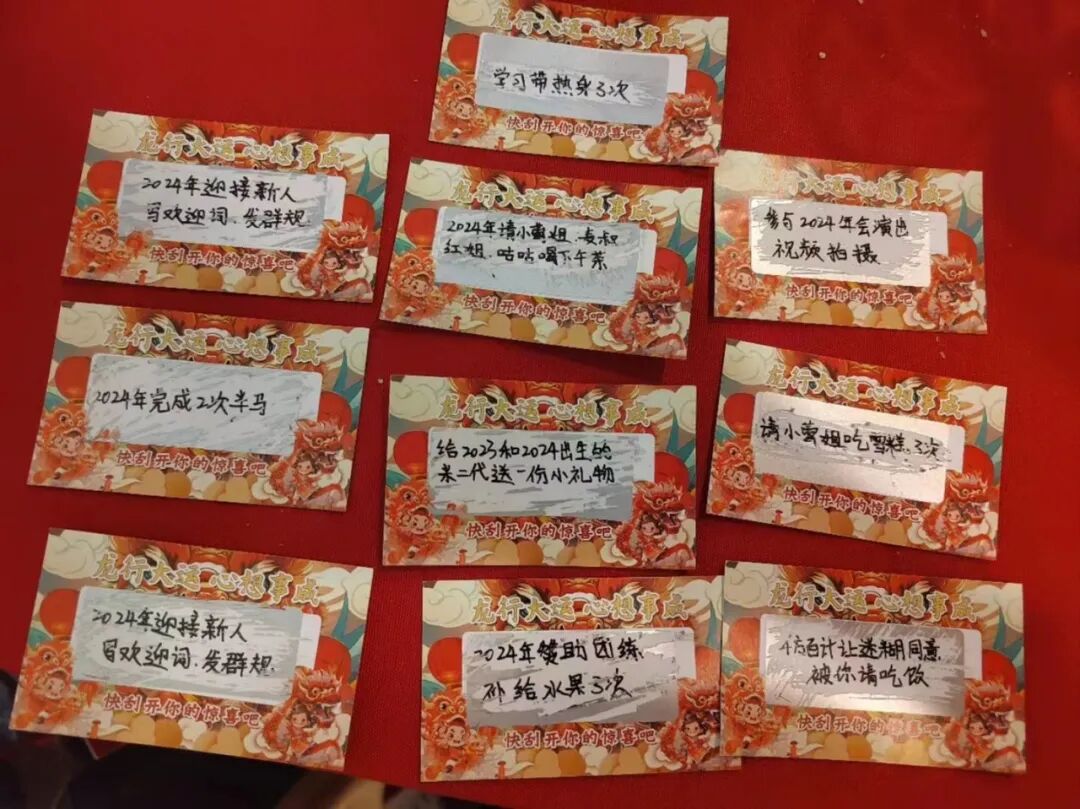 龙行大运 心想事成
学习带热身3次
快刮开你的惊喜吧
龙行大运 心想事成
2024年迎接新人
写欢迎词、发群规
快刮开你的惊喜吧
龙行大运 心想事成
2024年请小 姐、 叔
红姐、咕咕喝下午茶
快刮开你的惊喜吧
龙行大运 心想事成
参与2024年会演出
视频拍摄
快刮开你的惊喜吧
龙行大运 心想事成
2024年完成2次半马
快刮开你的惊喜吧
龙行大运 心想事成
给2023和2024出生的
二代送一份小礼物
快刮开你的惊喜吧
龙行大运 心想事成
请小 姐吃雪糕3次
快刮开你的惊喜吧
龙行大运 心想事成
2024年迎接新人
写欢迎词、发群规
快刮开你的惊喜吧
龙行大运 心想事成
2024年赞助团练
补给水果3次
快刮开你的惊喜吧
龙行大运 心想事成
千方百计让迷糊同意
被你请吃饭
快刮开你的惊喜吧